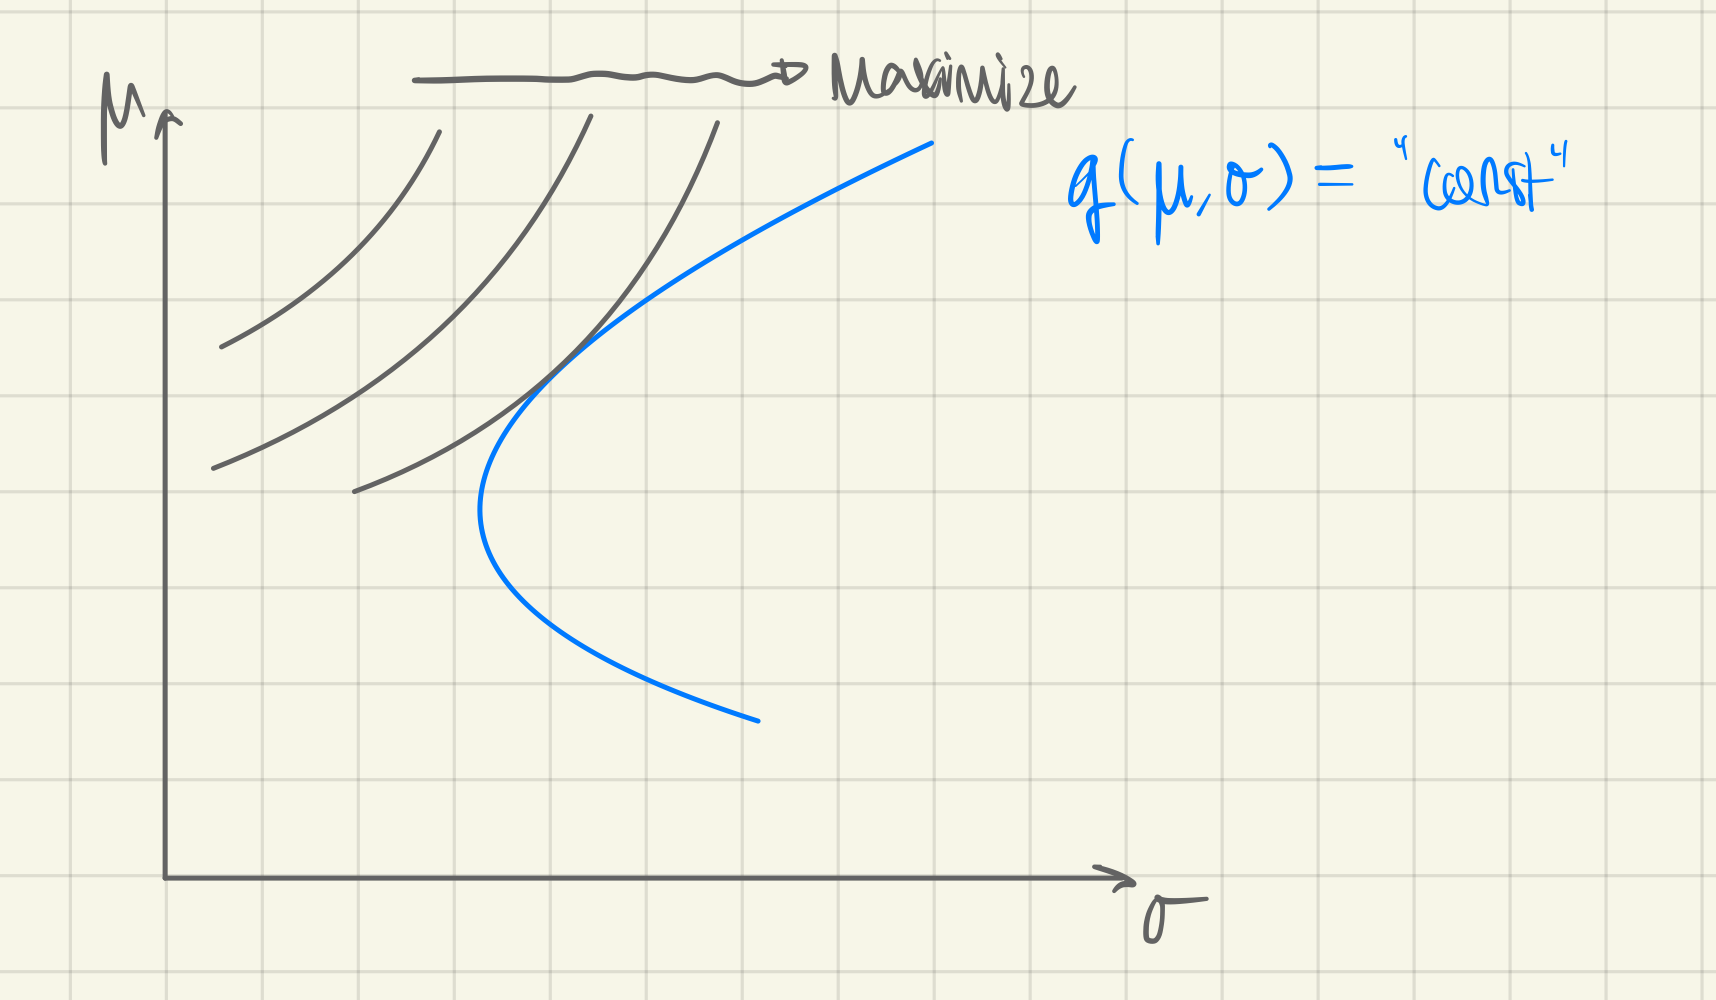 μ
Maximize
g(μ,σ) = "const"
σ